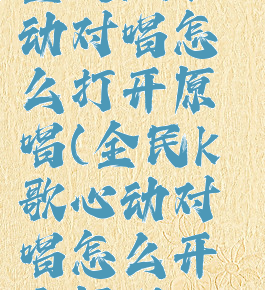 动对唱怎
么打开原
唱(全民k
歌心动对
唱怎么开